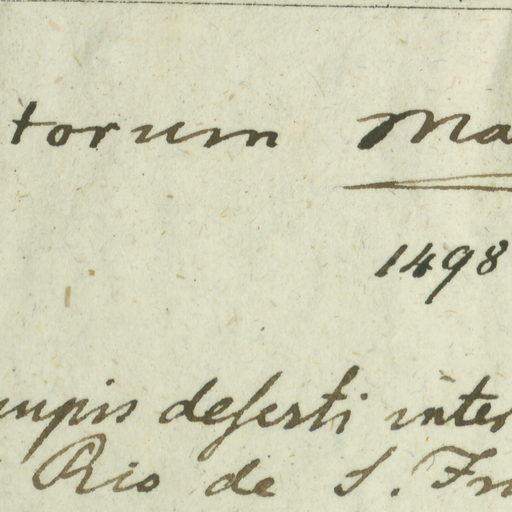 torum Ma
1498
umpis deserti inter
Rio de S. Fr